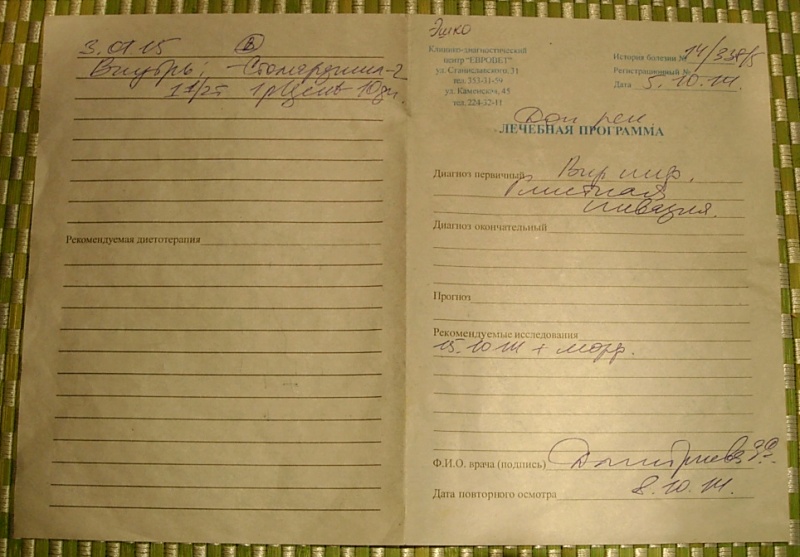 3.01.15 (В)
Внутрь: - Стомарджил-2
1 1/2т 1р день 10дн.
Рекомендуемая диетотерапия
Эшко
Клинико-диагностический
центр "ЕВРОВЕТ"
ул. Станиславского, 31
тел. 353-31-59
ул. Каменская, 45
тел. 224-32-11
История болезни №
Регистрационный №
Дата 5.10.14.
Доп рек
ЛЕЧЕБНАЯ ПРОГРАММА
Диагноз первичный Вир инф.
Глистная
инвазия.
Диагноз окончательный
Прогноз
Рекомендуемые исследования
15.10.14 + морф.
Ф.И.О. врача (подпись)
Дата повторного осмотра 8.10.14.